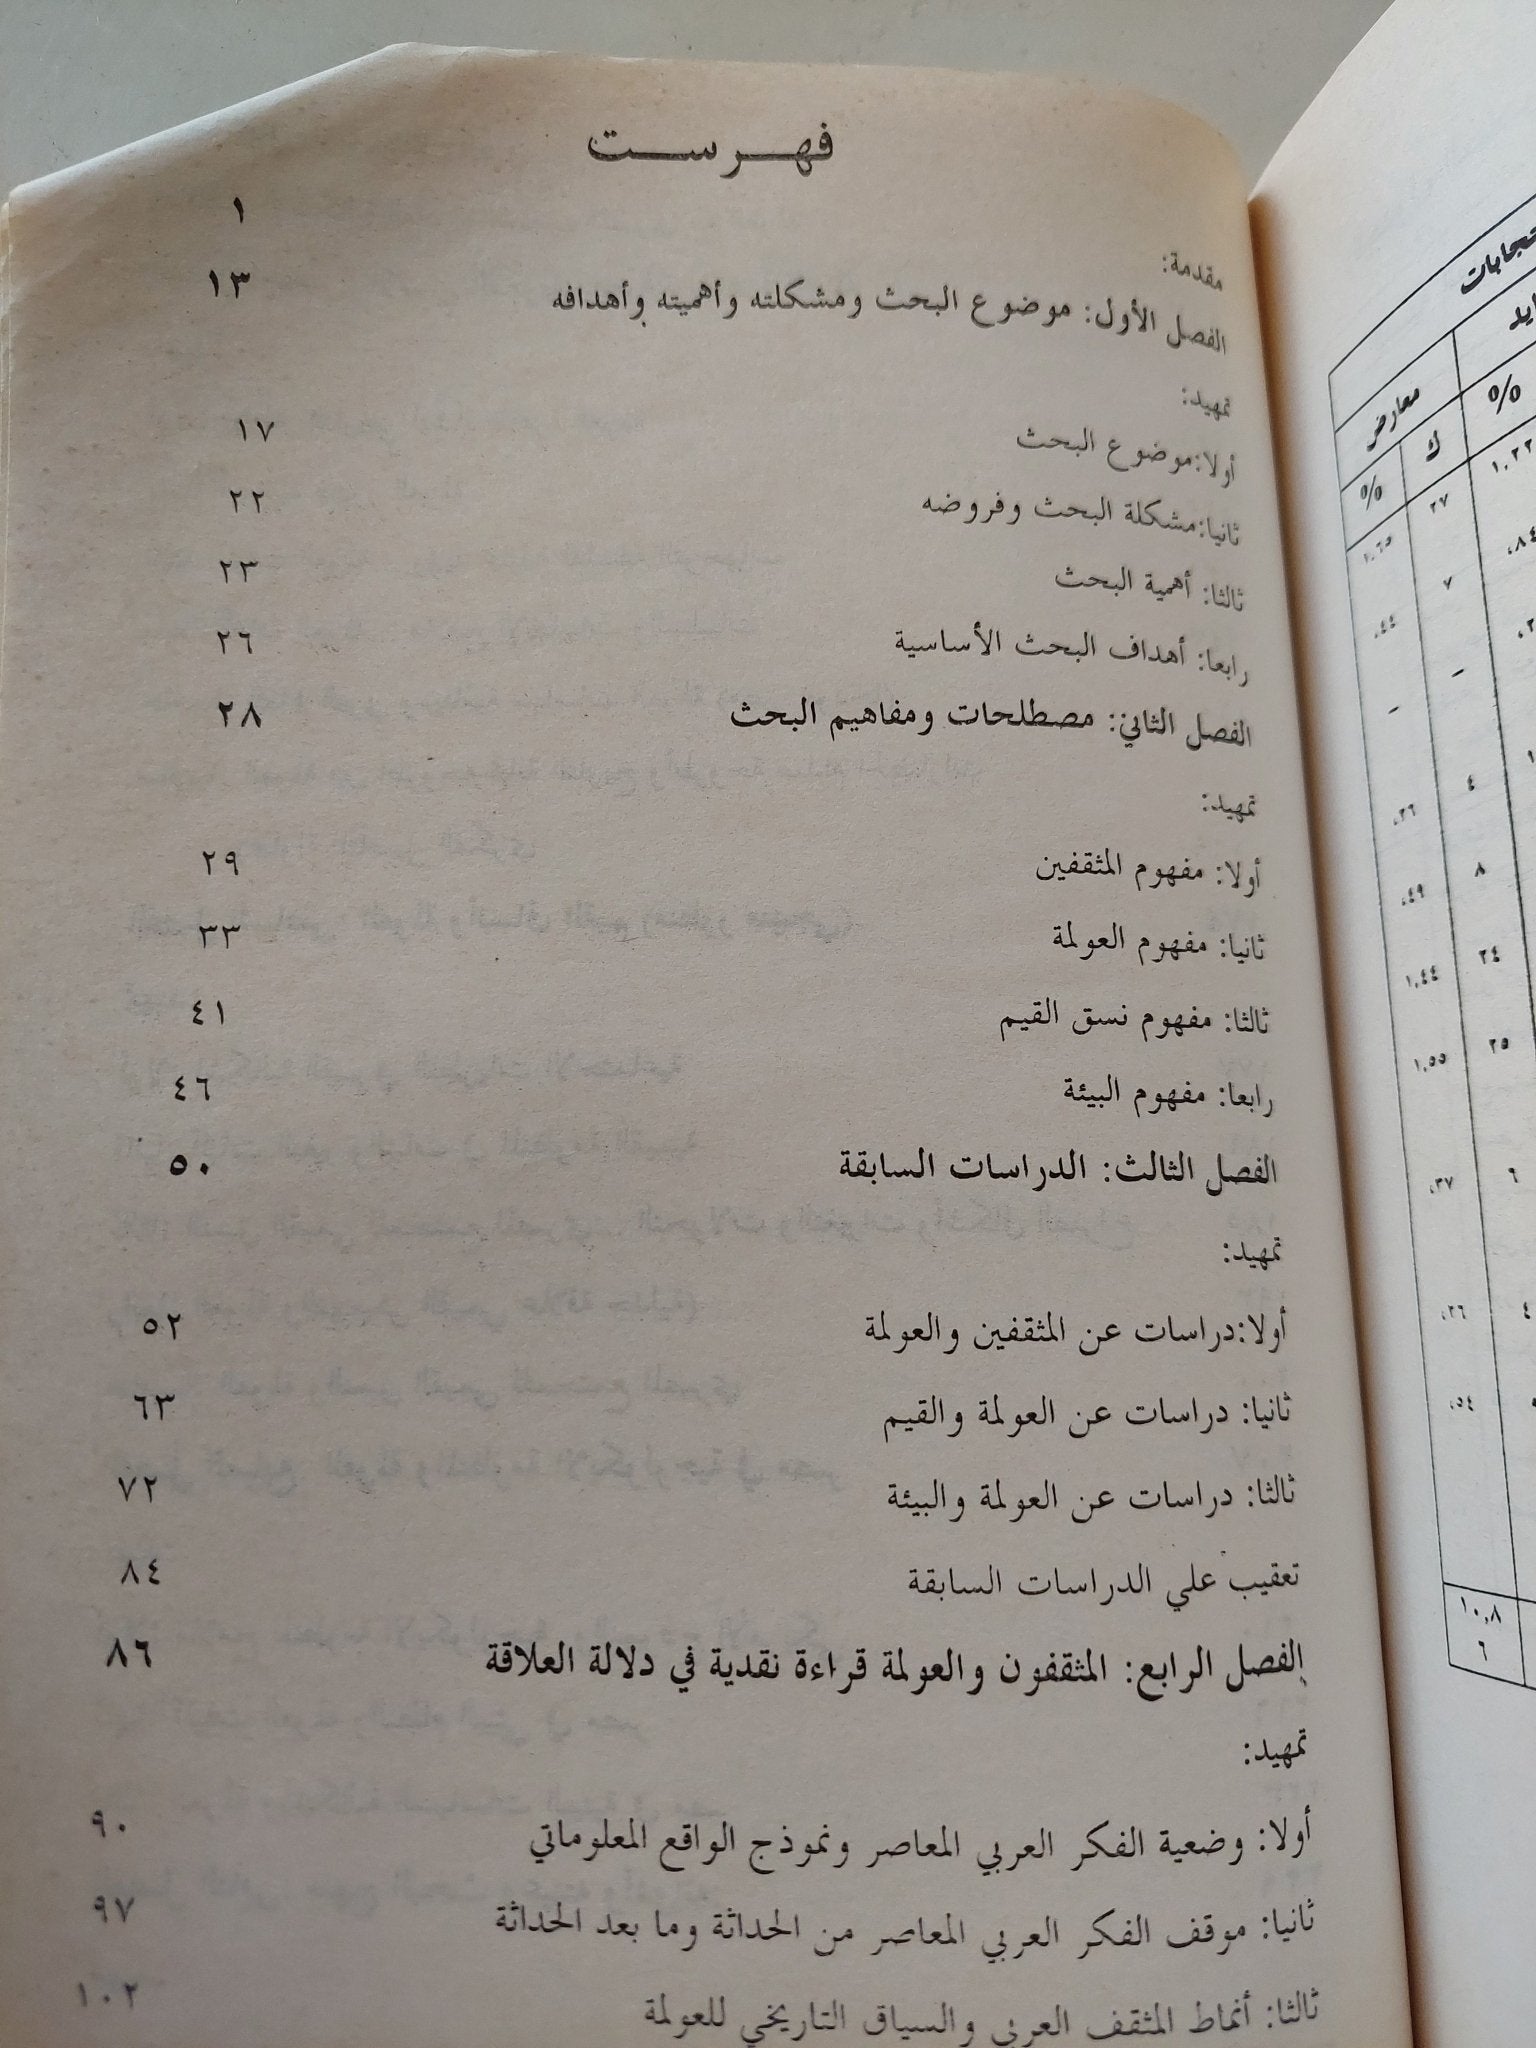 فهرست
مقدمة: ١
الفصل الأول: موضوع البحث ومشكلته وأهميته وأهدافه ١٣
تمهيد:
أولا:موضوع البحث ١٧
ثانيا:مشكلة البحث وفروضه ٢٢
ثالثا: أهمية البحث ٢٣
رابعا: أهداف البحث الأساسية ٢٦
الفصل الثاني: مصطلحات ومفاهيم البحث ٢٨
تمهيد:
أولا: مفهوم المثقفين ٢٩
ثانيا: مفهوم العولمة ٣٣
ثالثا: مفهوم نسق القيم ٤١
رابعا: مفهوم البيئة ٤٦
الفصل الثالث: الدراسات السابقة ٥٠
تمهيد:
أولا:دراسات عن المثقفين والعولمة ٥٢
ثانيا: دراسات عن العولمة والقيم ٦٣
ثالثا: دراسات عن العولمة والبيئة ٧٢
تعقيب علي الدراسات السابقة ٨٤
الفصل الرابع: المثقفون والعولمة قراءة نقدية في دلالة العلاقة ٨٦
تمهيد:
أولا: وضعية الفكر العربي المعاصر ونموذج الواقع المعلوماتي ٩٠
ثانيا: موقف الفكر العربي المعاصر من الحداثة وما بعد الحداثة ٩٧
ثالثا: أنماط المثقف العربي والسياق التاريخي للعولمة ١٠٢
معارض
% ك %
٢٧
١,٦٥
٧
,٤٤
-
-
٤
,٢٦
٨
,٤٩
٢٤
١,٤٤
٢٥
١,٥٥
٦
,٣٧
٤
,٢٦
,٥٤
١٠,٨
٦